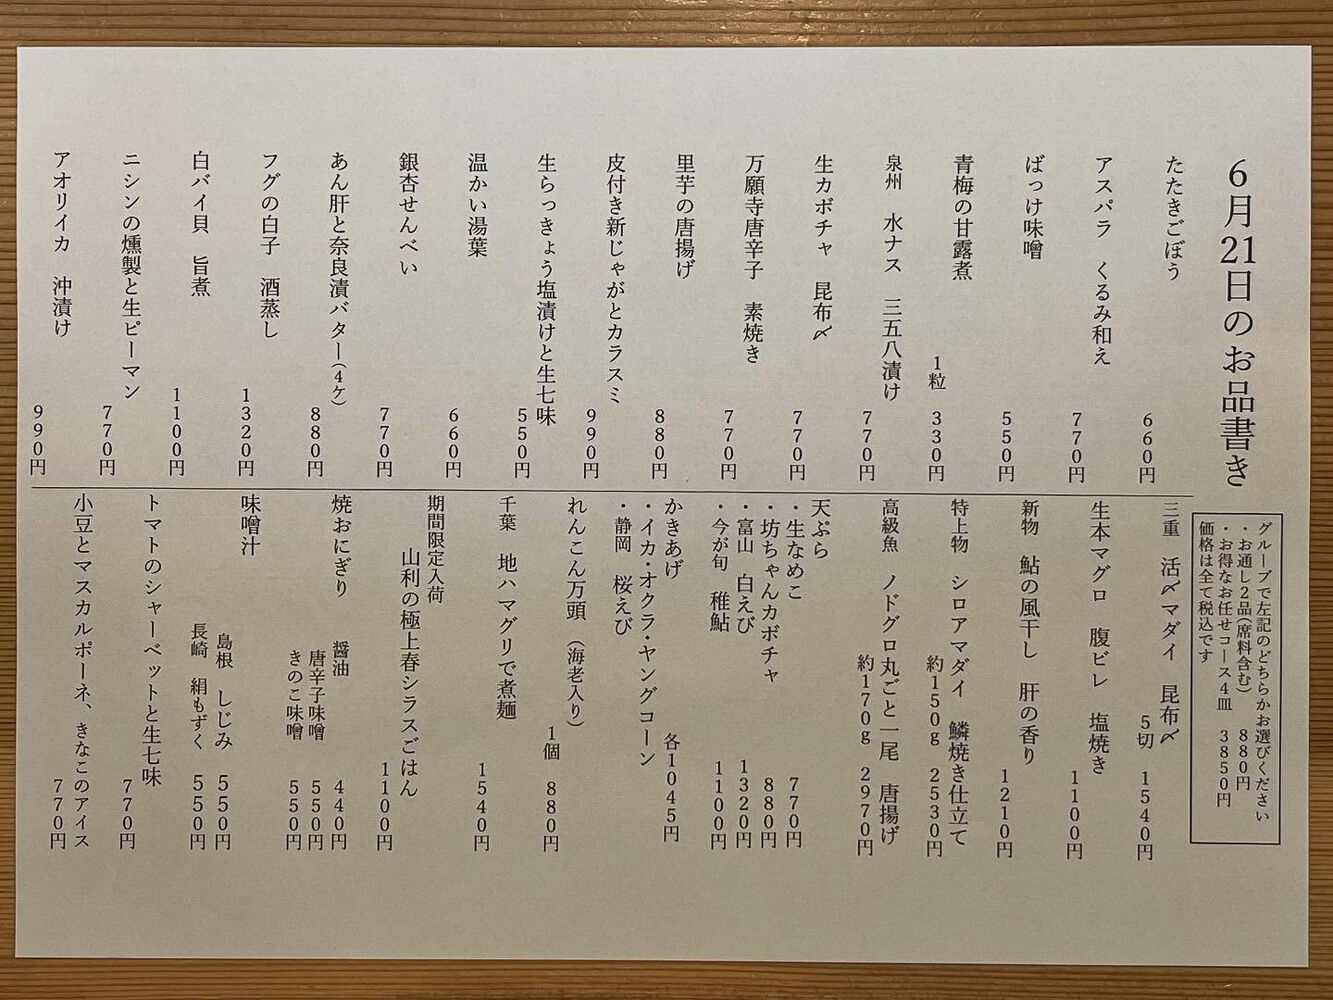 6月21日のお品書き
グループで左記のどちらかお選びください
・お通し2品(席料含む) 880円
・お得なお任せコース4皿 3850円
価格は全て税込です
たたきごぼう 660円
アスパラ くるみ和え 770円
ばっけ味噌 550円
青梅の甘露煮 1粒 330円
泉州 水ナス 三五八漬け 770円
生カボチャ 昆布〆 770円
万願寺唐辛子 素焼き 770円
里芋の唐揚げ 880円
皮付き新じゃがとカラスミ 990円
生らっきょう塩漬けと生七味 550円
温かい湯葉 660円
銀杏せんべい 770円
あん肝と奈良漬バター(4ケ) 880円
フグの白子 酒蒸し 1320円
白バイ貝 旨煮 1100円
ニシンの燻製と生ピーマン 770円
アオリイカ 沖漬け 990円
三重 活〆マダイ 昆布〆 5切 1540円
生本マグロ 腹ビレ 塩焼き 1100円
新物 鮎の風干し 肝の香り 1210円
特上物 シロアマダイ 鱗焼き仕立て
約150g 2530円
高級魚 ノドグロ丸ごと一尾 唐揚げ
約170g 2970円
天ぷら
・生なめこ 770円
・坊ちゃんカボチャ 880円
・富山 白えび 1320円
・今が旬 稚鮎 1100円
かきあげ 各1045円
・イカ・オクラ・ヤングコーン
・静岡 桜えび
れんこん万頭 (海老入り) 1個 880円
千葉 地ハマグリで煮麺 1540円
期間限定入荷
山利の極上春シラスごはん 1100円
焼おにぎり 醤油 440円
唐辛子味噌 550円
きのこ味噌 550円
味噌汁 島根 しじみ 550円
長崎 絹もずく 550円
トマトのシャーベットと生七味 770円
小豆とマスカルポーネ、きなこのアイス 770円